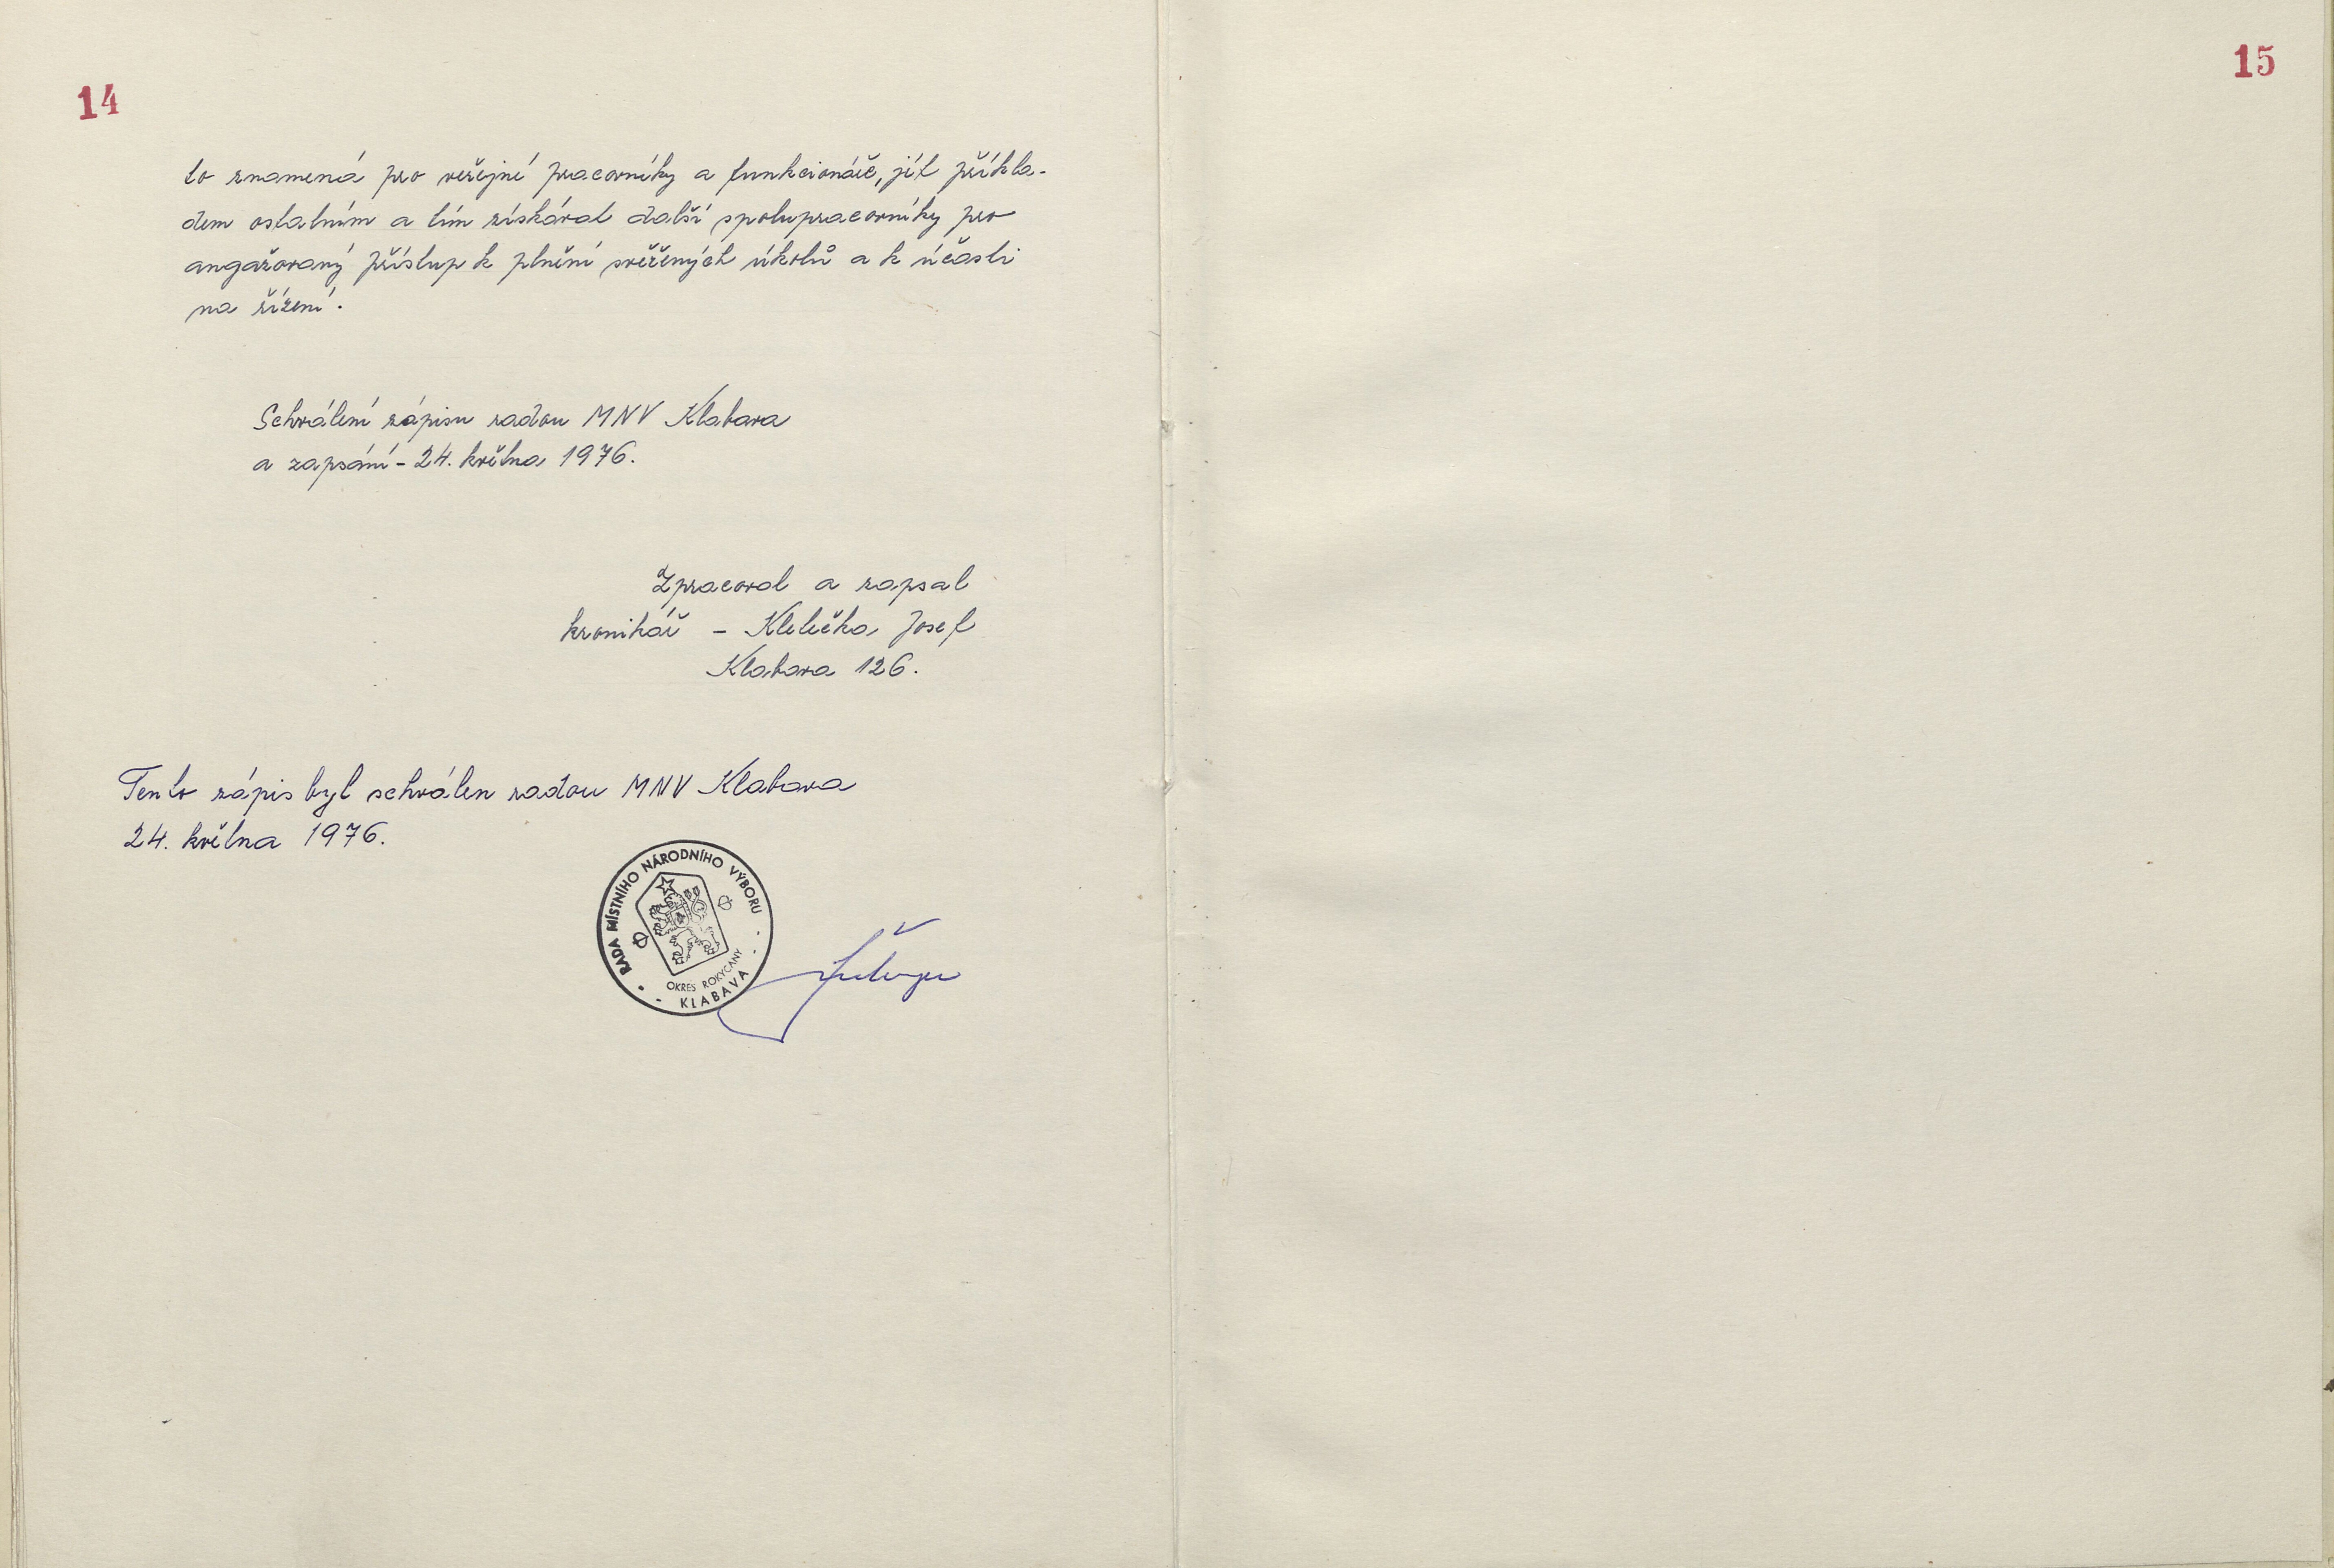 14
to znamená pro veřejné pracovníky a funkcionáře, jít příkla-
dem ostatním a tím získávat další spolupracovníky pro
angažovaný přístup k plnění svěřených úkolů a k účasti
na řízení.
Schválení zápisu radou MNV Klabava
a zapsání - 24. května 1976.
Zpracoval a zapsal
kronikář - Klelečka Josef
Klabava 126.
Tento zápis byl schválen radou MNV Klabava
24. května 1976.
RADA MÍSTNÍHO NÁRODNÍHO VÝBORU
OKRES ROKYCANY
KLABAVA
15